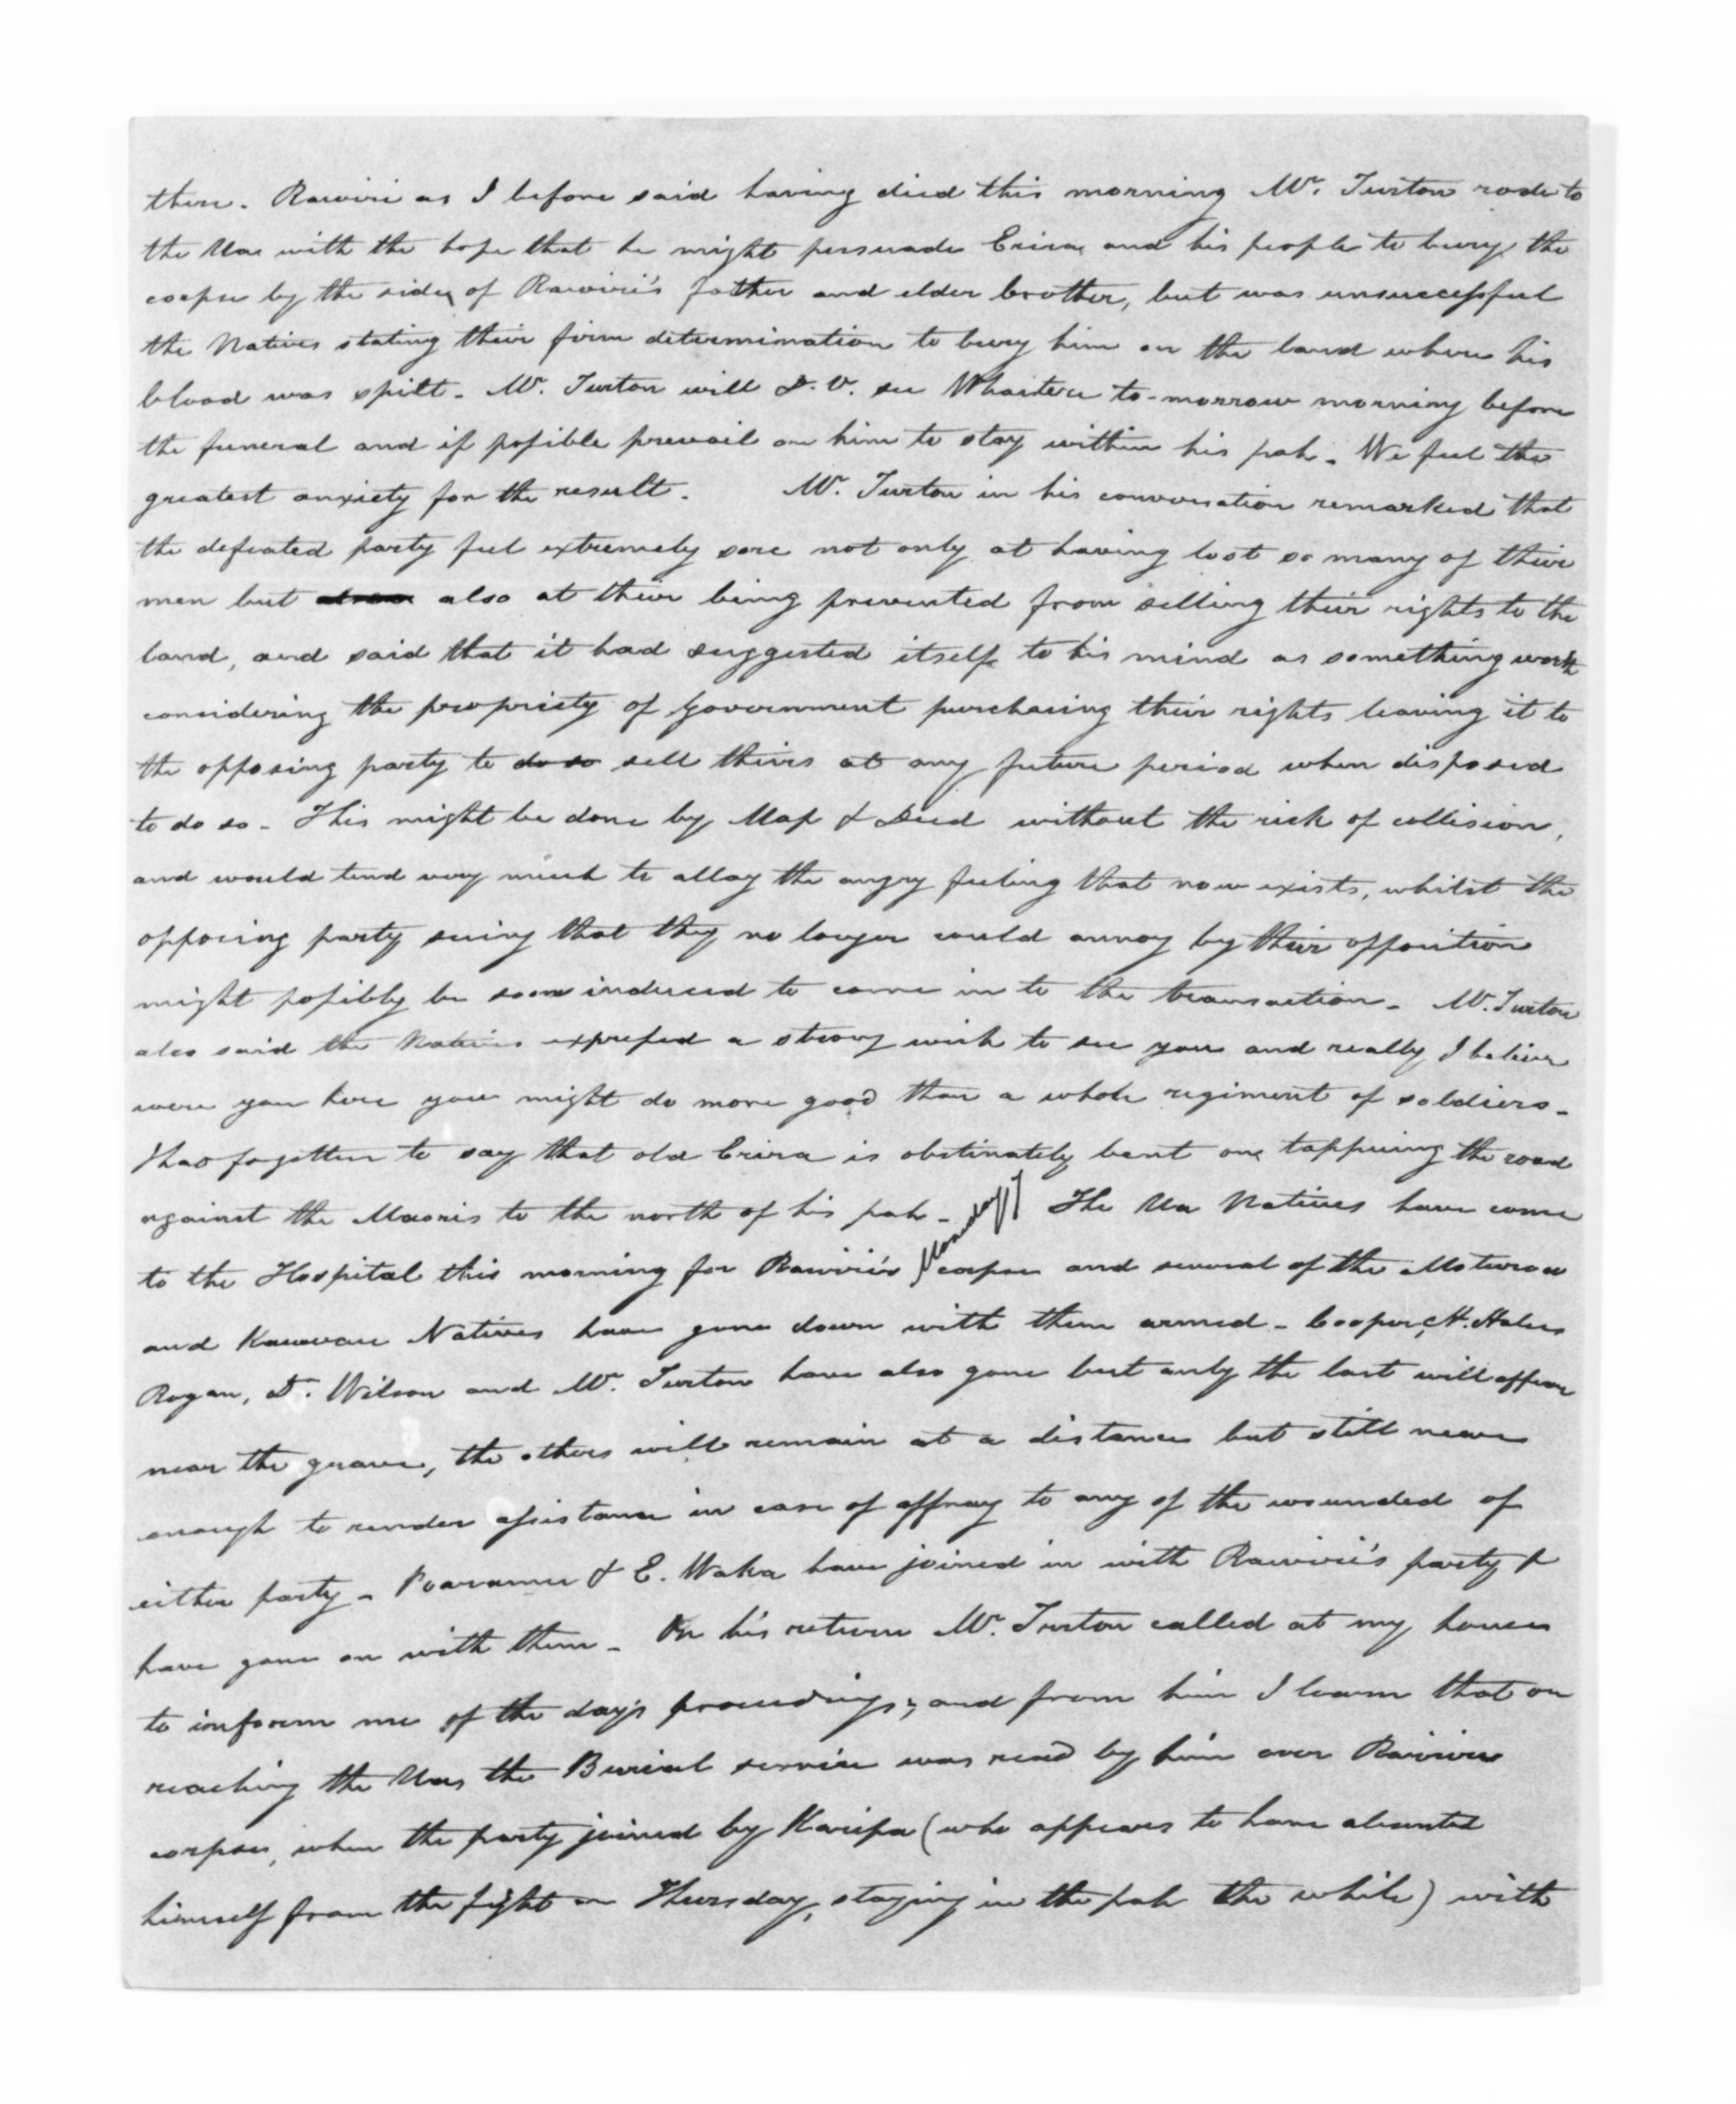 them. Rawiri as I before said having died this morning Mr. Turton rode to
the Hua with the hope that he might persuade Erira and his people to bury the
corpse by the side of Rawiri's father and elder brother, but was unsuccessful
the Natives stating their firm determination to bury him on the land where his
blood was spilt - Mr. Turton will D.V. see Whaitere to-morrow morning before
the funeral and if possible prevail on him to stay within his pah - We feel the
greatest anxiety for the result. Mr. Turton in his conversation remarked that
the defeated party feel extremely sore not only at having lost so many of their
men but also at their being prevented from selling their rights to the
land, and said that it had suggested itself to his mind as something worth
considering the propriety of Government purchasing their rights leaving it to
the opposing party to do so sell theirs at any future period when disposed
to do so - This might be done by Map & Deed without the risk of collision,
and would tend very much to allay the angry feeling that now exists, whilst the
opposing party seeing that they no longer could annoy by their opposition
might possibly be soon induced to come in to the transaction - Mr. Turton
also said the Natives expressed a strong wish to see you and really I believe
were you here you might do more good than a whole regiment of soldiers -
I had forgotten to say that old Erira is obstinately bent on tappuing the road
against the Maoris to the north of his pah - Monday The Hua Natives have come
to the Hospital this morning for Rawiri's corpse and several of the Moturoa
and Kawau Natives have gone down with them armed - Cooper, H. Halse
Rogan, Dr. Wilson and Mr. Turton have also gone but only the last will appear
near the grave, the others will remain at a distance but still near
enough to render assistance in case of affray to any of the wounded of
either party - Poarama & E. Waka have joined in with Rawiri's party &
have gone on with them - On his return Mr. Turton called at my house
to inform me of the day's proceedings, and from him I learn that on
reaching the Hua the Burial service was read by him over Rawiri's
corpse, when the party joined by Karipa (who appears to have absented
himself from the fight on Thursday, staying in the pah the while) with